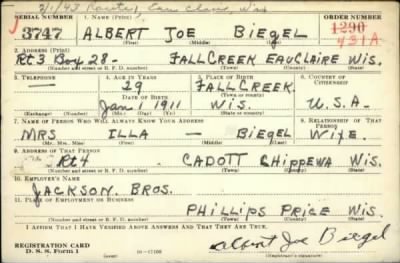 2/1/43 Route 1 Eau Claire, Wis
SERIAL NUMBER 1. NAME (Print) ORDER NUMBER
3747 ALBERT JOE BIEGEL 1290
(First) (Middle) (Last) 431A
2. ADDRESS (Print)
Rt 3 Box 28- FALL CREEK EAU CLAIRE WIS.
(Number and street or R. F. D. number) (Town) (County) (State)
3. TELEPHONE 4. AGE IN YEARS 5. PLACE OF BIRTH 6. COUNTRY OF CITIZENSHIP
— 29 FALL CREEK
DATE OF BIRTH (Town or county)
Jan 1911 WIS. U.S.A.
(Exchange) (Number) (Mo.) (Day) (Yr.) (State or country)
7. NAME OF PERSON WHO WILL ALWAYS KNOW YOUR ADDRESS 8. RELATIONSHIP OF THAT PERSON
MRS ILLA — BIEGEL WIFE.
(Mr., Mrs., Miss) (First) (Middle) (Last)
9. ADDRESS OF THAT PERSON
Rt 4 CADOTT CHIPPEWA WIS.
(Number and street or R. F. D. number) (Town) (County) (State)
10. EMPLOYER'S NAME
JACKSON BROS.
11. PLACE OF EMPLOYMENT OR BUSINESS
PHILLIPS PRICE WIS.
(Number and street or R. F. D. number) (Town) (County) (State)
I AFFIRM THAT I HAVE VERIFIED ABOVE ANSWERS AND THAT THEY ARE TRUE.
REGISTRATION CARD
D. S. S. Form 1 16—17105 Albert Joe Biegel
(Registrant's signature)